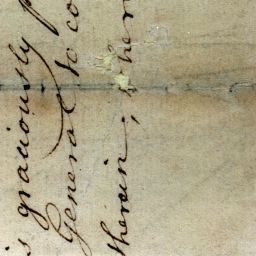 s graciously
General to co
therein;